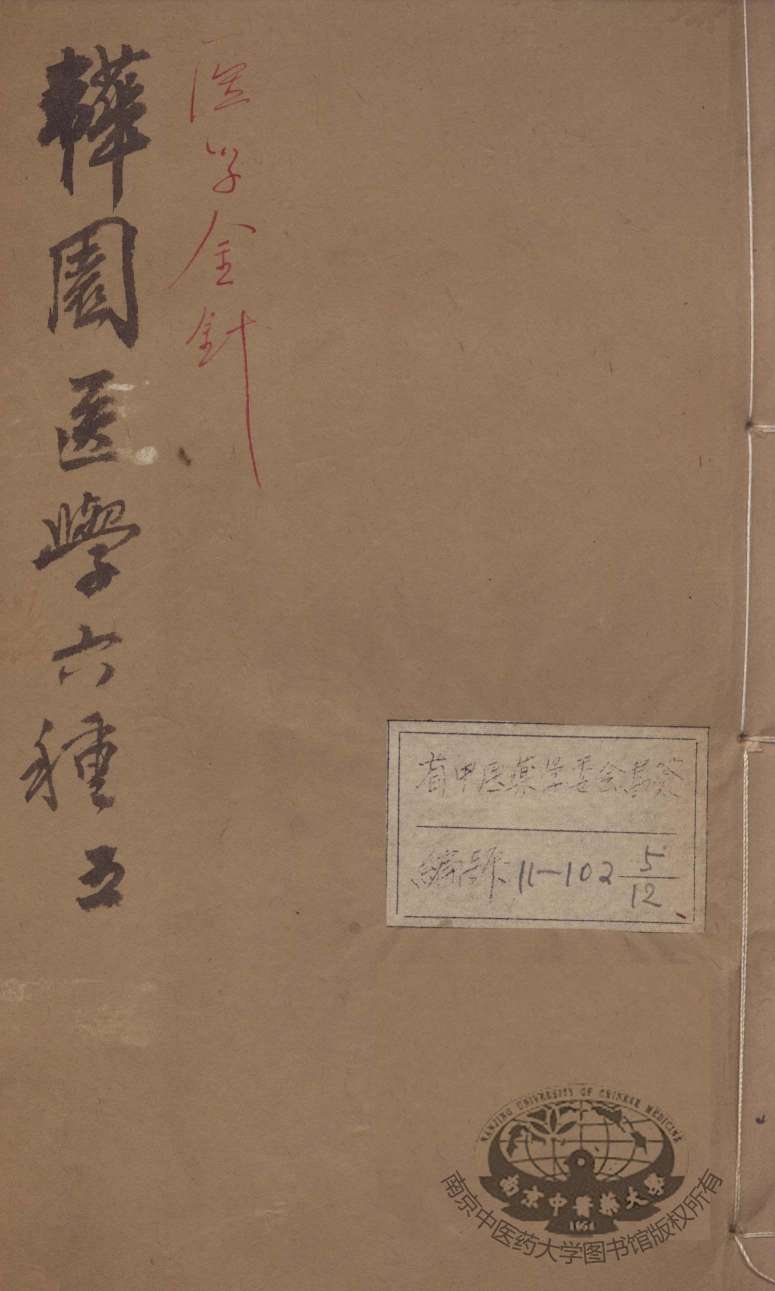 韡園医學六種 五
医学金针
省中医药学委会书签
编号 11-102 5/12
NANJING UNIVERSITY OF CHINESE MEDICINE
南京中醫藥大學
1954
南京中医药大学图书馆版权所有